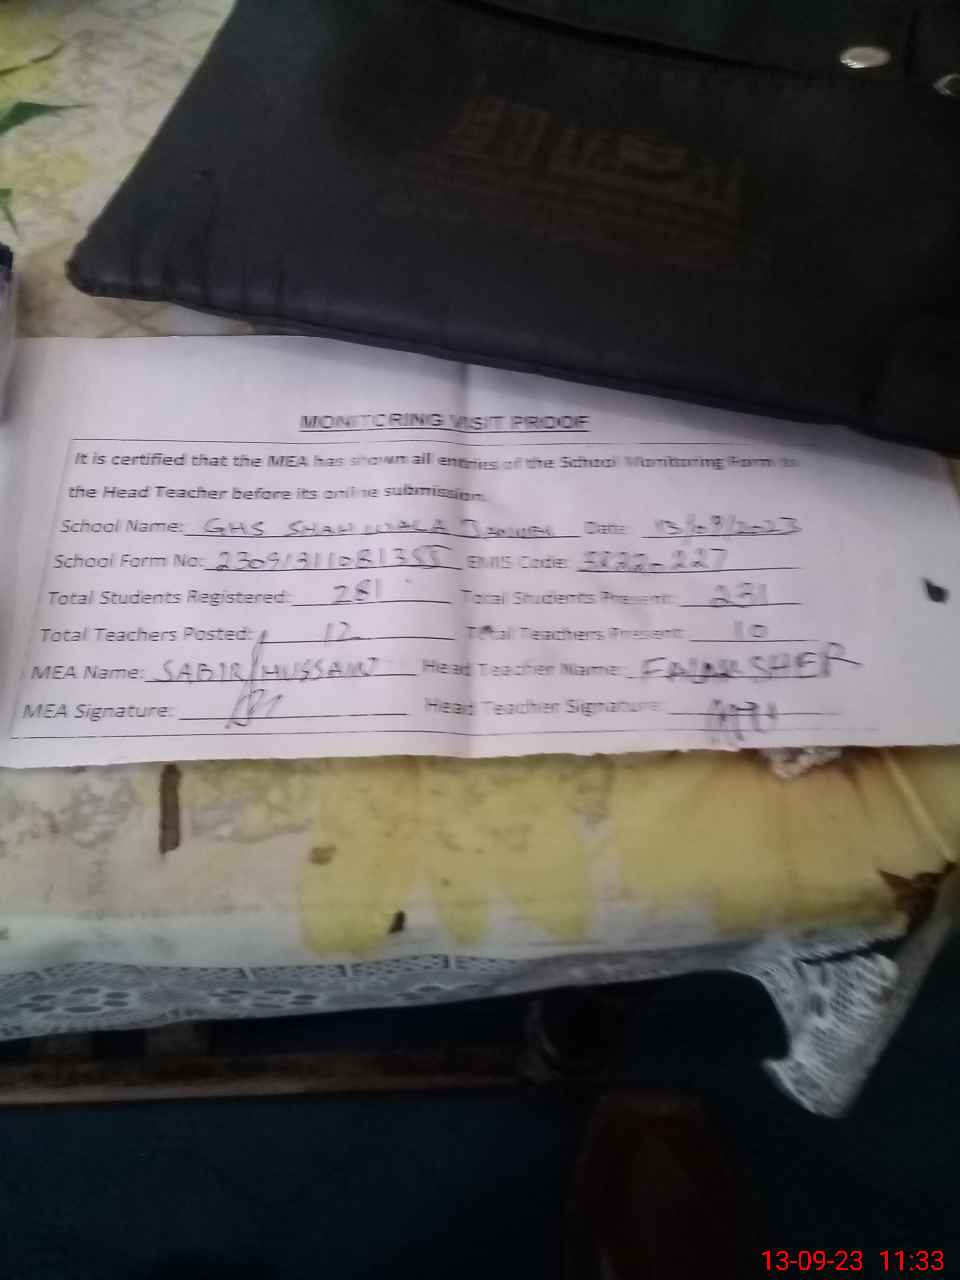 MONITORING VISIT PROOF
It is certified that the MEA has shown all entries of the School Monitoring Form to
the Head Teacher before its online submission.
School Name: GHS SHAH WALA Date: 13/09/2023
School Form No: EMIS Code:
Total Students Registered: 281 Total Students Present: 231
Total Teachers Posted: 12 Total Teachers Present: 10
MEA Name: SABIR HUSSAIN Head Teacher Name: SHER
MEA Signature: Head Teacher Signature:
13-09-23 11:33